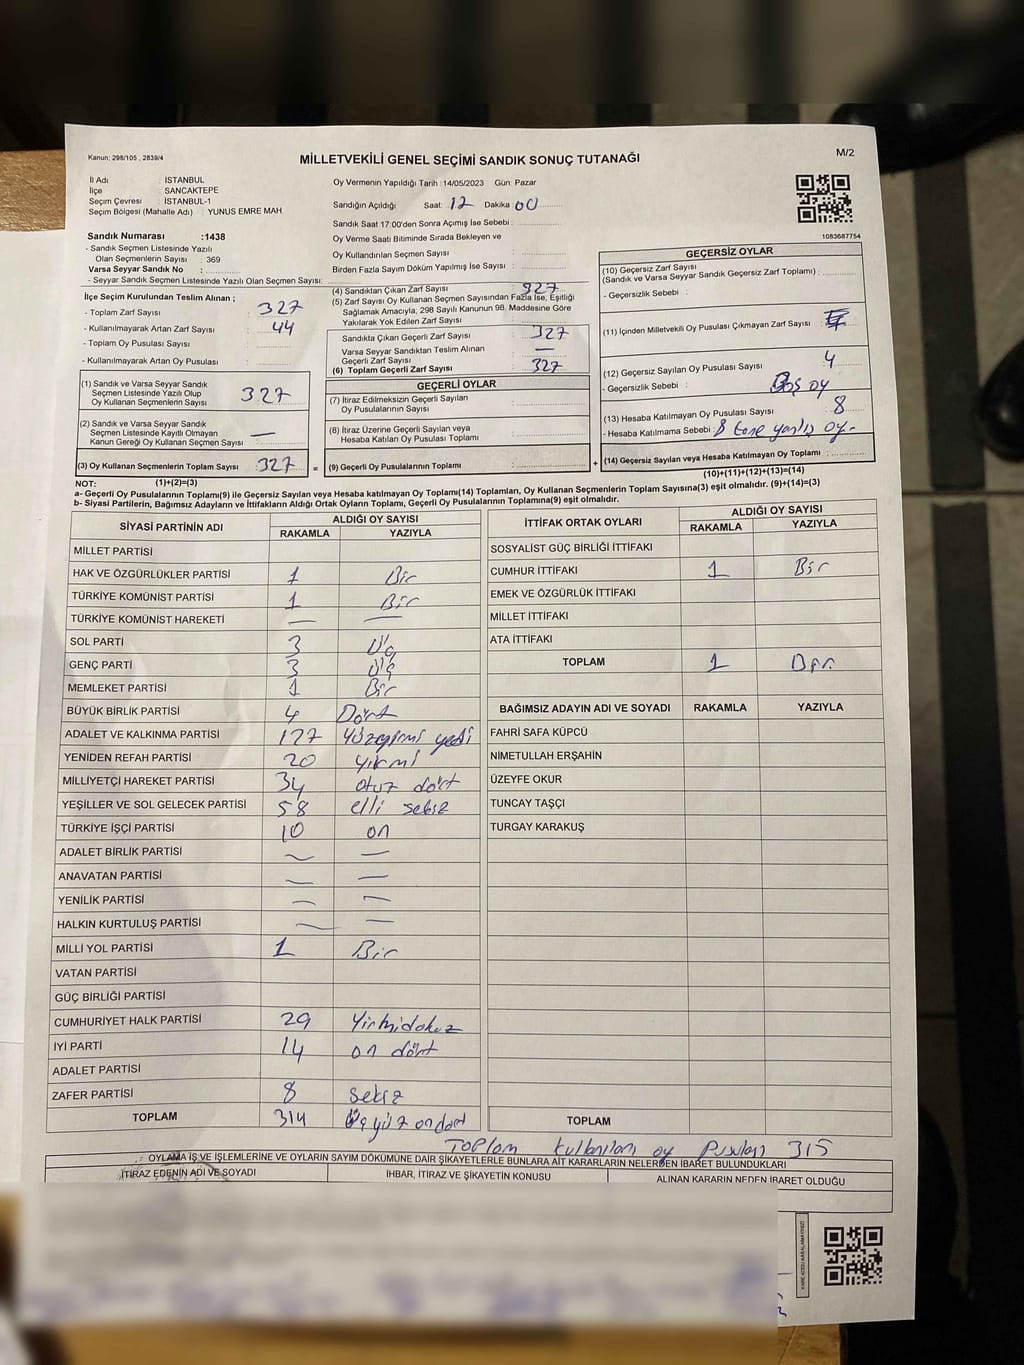 Kanun; 298/105 , 2839/4
MİLLETVEKİLİ GENEL SEÇİMİ SANDIK SONUÇ TUTANAĞI
M/2
İl Adı : İSTANBUL
İlçe : SANCAKTEPE
Seçim Çevresi : İSTANBUL-1
Seçim Bölgesi (Mahalle Adı) : YUNUS EMRE MAH
Sandık Numarası :1438
- Sandık Seçmen Listesinde Yazılı
Olan Seçmenlerin Sayısı : 369
Varsa Seyyar Sandık No :
- Seyyar Sandık Seçmen Listesinde Yazılı Olan Seçmen Sayısı:
Oy Vermenin Yapıldığı Tarih :14/05/2023 Gün: Pazar
Sandığın Açıldığı Saat: 12 Dakika: 00
Sandık Saat 17:00'den Sonra Açımış İse Sebebi :
Oy Verme Saati Bitiminde Sırada Bekleyen ve
Oy Kullandırılan Seçmen Sayısı :
Birden Fazla Sayım Döküm Yapılmış İse Sayısı :
1083687754
İlçe Seçim Kurulundan Teslim Alınan ;
- Toplam Zarf Sayısı : 327
- Kullanılmayarak Artan Zarf Sayısı : 44
- Toplam Oy Pusulası Sayısı :
- Kullanılmayarak Artan Oy Pusulası :
(1) Sandık ve Varsa Seyyar Sandık
Seçmen Listesinde Yazılı Olup
Oy Kullanan Seçmenlerin Sayısı : 327
(2) Sandık ve Varsa Seyyar Sandık
Seçmen Listesinde Kayıtlı Olmayan
Kanun Gereği Oy Kullanan Seçmen Sayısı : —
(3) Oy Kullanan Seçmenlerin Toplam Sayısı : 327
(1)+(2)=(3)
(4) Sandıktan Çıkan Zarf Sayısı : 327
(5) Zarf Sayısı Oy Kullanan Seçmen Sayısından Fazla İse, Eşitliği
Sağlamak Amacıyla; 298 Sayılı Kanunun 98. Maddesine Göre
Yakılarak Yok Edilen Zarf Sayısı :
Sandıkta Çıkan Geçerli Zarf Sayısı : 327
Varsa Seyyar Sandıktan Teslim Alınan
Geçerli Zarf Sayısı : —
(6) Toplam Geçerli Zarf Sayısı : 327
GEÇERLİ OYLAR
(7) İtiraz Edilmeksizin Geçerli Sayılan
Oy Pusulalarının Sayısı :
(8) İtiraz Üzerine Geçerli Sayılan veya
Hesaba Katılan Oy Pusulası Toplamı :
= (9) Geçerli Oy Pusulalarının Toplamı :
GEÇERSİZ OYLAR
(10) Geçersiz Zarf Sayısı
(Sandık ve Varsa Seyyar Sandık Geçersiz Zarf Toplamı) :
- Geçersizlik Sebebi :
(11) İçinden Milletvekili Oy Pusulası Çıkmayan Zarf Sayısı :
(12) Geçersiz Sayılan Oy Pusulası Sayısı : 4
- Geçersizlik Sebebi : Boş oy
(13) Hesaba Katılmayan Oy Pusulası Sayısı : 8
- Hesaba Katılmama Sebebi : 8 tane yanlış oy-
+ (14) Geçersiz Sayılan veya Hesaba Katılmayan Oy Toplamı :
(10)+(11)+(12)+(13)=(14)
NOT:
a- Geçerli Oy Pusulalarının Toplamı(9) ile Geçersiz Sayılan veya Hesaba katılmayan Oy Toplamı(14) Toplamları, Oy Kullanan Seçmenlerin Toplam Sayısına(3) eşit olmalıdır. (9)+(14)=(3)
b- Siyasi Partilerin, Bağımsız Adayların ve İttifakların Aldığı Ortak Oyların Toplamı, Geçerli Oy Pusulalarının Toplamına(9) eşit olmalıdır.
SİYASİ PARTİNİN ADI ALDIĞI OY SAYISI
RAKAMLA YAZIYLA
MİLLET PARTİSİ
HAK VE ÖZGÜRLÜKLER PARTİSİ 1 Bir
TÜRKİYE KOMÜNİST PARTİSİ 1 Bir
TÜRKİYE KOMÜNİST HAREKETİ — —
SOL PARTİ 3 Üç
GENÇ PARTİ 3 Üç
MEMLEKET PARTİSİ 1 Bir
BÜYÜK BİRLİK PARTİSİ 4 Dört
ADALET VE KALKINMA PARTİSİ 127 Yüzyirmi yedi
YENİDEN REFAH PARTİSİ 20 yirmi
MİLLİYETÇİ HAREKET PARTİSİ 34 otuz dört
YEŞİLLER VE SOL GELECEK PARTİSİ 58 elli sekiz
TÜRKİYE İŞÇİ PARTİSİ 10 on
ADALET BİRLİK PARTİSİ — —
ANAVATAN PARTİSİ — —
YENİLİK PARTİSİ — —
HALKIN KURTULUŞ PARTİSİ — —
MİLLİ YOL PARTİSİ 1 Bir
VATAN PARTİSİ
GÜÇ BİRLİĞİ PARTİSİ
CUMHURİYET HALK PARTİSİ 29 Yirmidokuz
İYİ PARTİ 14 on dört
ADALET PARTİSİ
ZAFER PARTİSİ 8 Sekiz
TOPLAM 314 Üçyüz ondört
İTTİFAK ORTAK OYLARI ALDIĞI OY SAYISI
RAKAMLA YAZIYLA
SOSYALİST GÜÇ BİRLİĞİ İTTİFAKI
CUMHUR İTTİFAKI 1 Bir
EMEK VE ÖZGÜRLÜK İTTİFAKI
MİLLET İTTİFAKI
ATA İTTİFAKI
TOPLAM 1 Bir
BAĞIMSIZ ADAYIN ADI VE SOYADI RAKAMLA YAZIYLA
FAHRİ SAFA KÜPCÜ
NİMETULLAH ERŞAHİN
ÜZEYFE OKUR
TUNCAY TAŞÇI
TURGAY KARAKUŞ
TOPLAM
Toplam kullanılan oy Pusulası 315
OYLAMA İŞ VE İŞLEMLERİNE VE OYLARIN SAYIM DÖKÜMÜNE DAİR ŞİKAYETLERLE BUNLARA AİT KARARLARIN NELERDEN İBARET BULUNDUKLARI
İTİRAZ EDENİN ADI VE SOYADI İHBAR, İTİRAZ VE ŞİKAYETİN KONUSU ALINAN KARARIN NEDEN İBARET OLDUĞU
KARE KODU KARALAMAYINIZ!